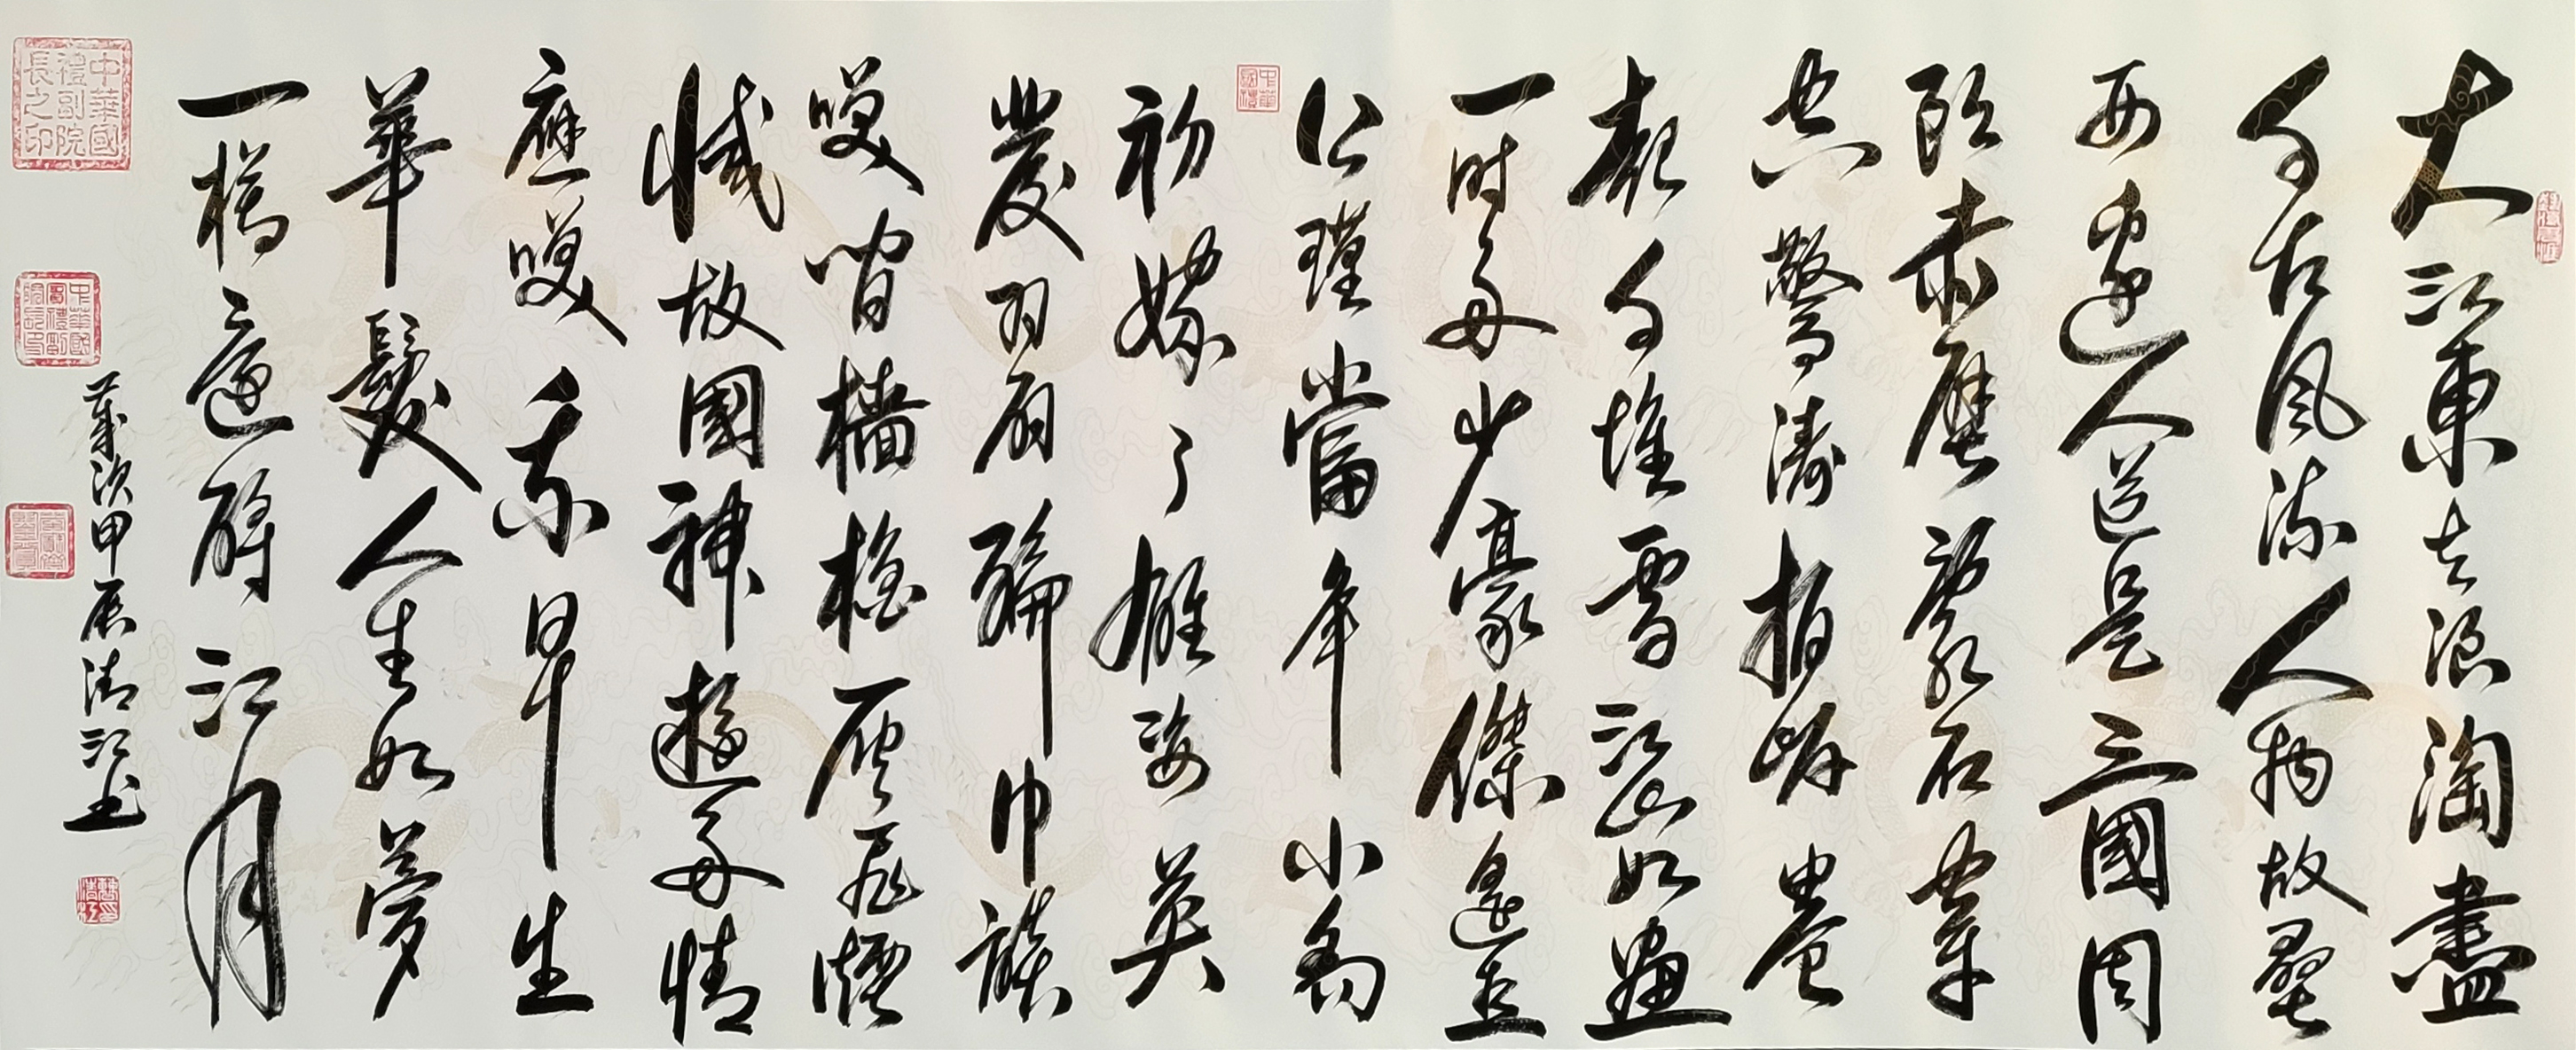 大江東去浪淘盡
千古風流人物故壘
西邊人道是三國周
郎赤壁亂石穿
空驚濤拍岸卷
起千堆雪江山如畫
一時多少豪傑遙想
公瑾當年小喬
初嫁了雄姿英
發羽扇綸巾談
笑間檣櫓灰飛煙
滅故國神遊多情
應笑我早生
華髮人生如夢
一樽還酹江月
歲次甲辰清江书
中華國
禮副院
長之印
中華國禮